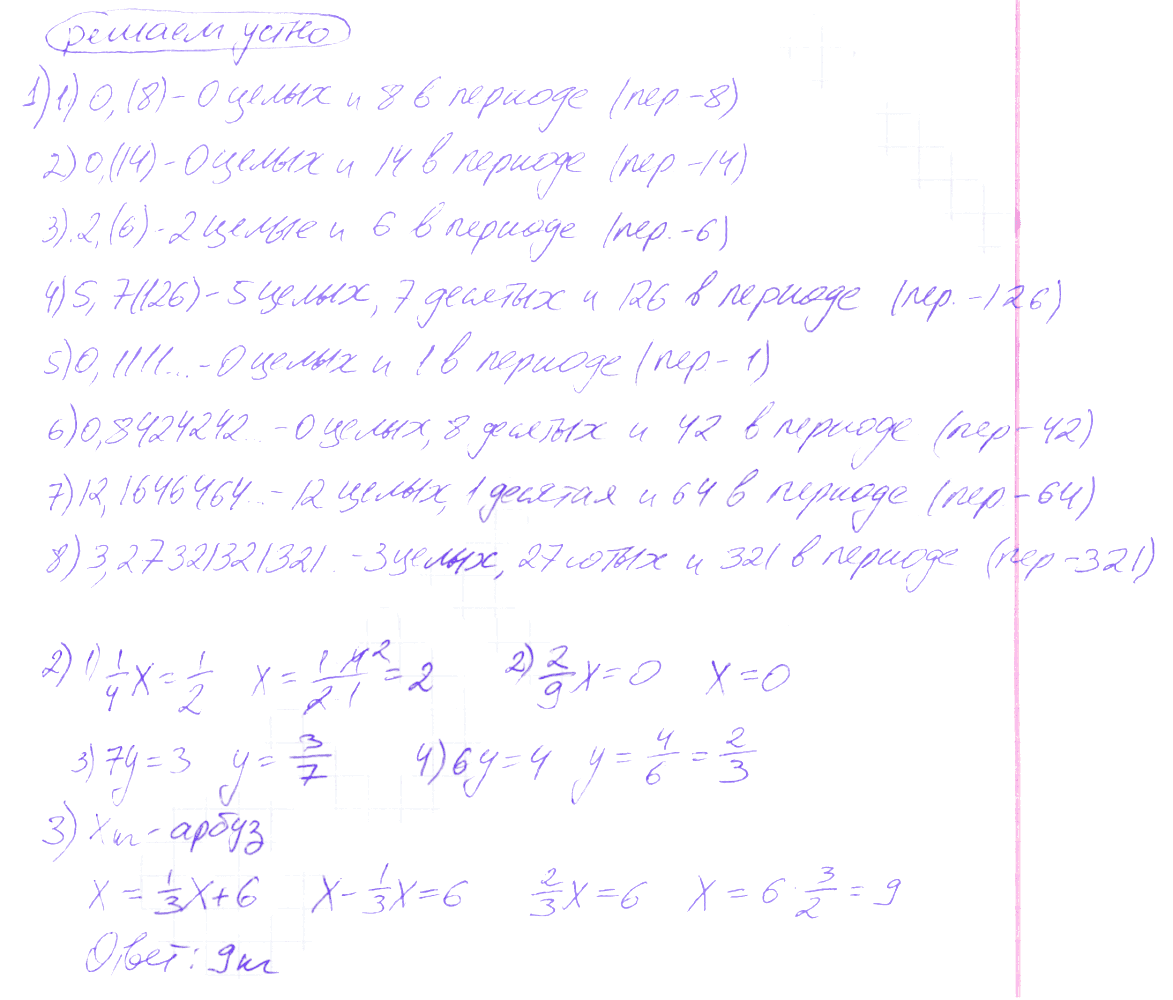 решаем устно
1) 1) 0,(8) - 0 целых и 8 в периоде (пер - 8)
2) 0,(14) - 0 целых и 14 в периоде (пер - 14)
3) 2,(6) - 2 целые и 6 в периоде (пер. - 6)
4) 5,7(126) - 5 целых, 7 десятых и 126 в периоде (пер. - 126)
5) 0,1111... - 0 целых и 1 в периоде (пер - 1)
6) 0,8424242... - 0 целых, 8 десятых и 42 в периоде (пер - 42)
7) 12,1646464... - 12 целых, 1 десятая и 64 в периоде (пер - 64)
8) 3,27321321321.. - 3 целых, 27 сотых и 321 в периоде (пер - 321)
2) 1) 1/4 x = 1/2 x = 1 4 2 / 2 1 = 2 2) 2/9 x = 0 x = 0
3) 7y = 3 y = 3/7 4) 6y = 4 y = 4/6 = 2/3
3) x кг - арбуз
x = 1/3 x + 6 x - 1/3 x = 6 2/3 x = 6 x = 6 · 3/2 = 9
Ответ: 9 кг